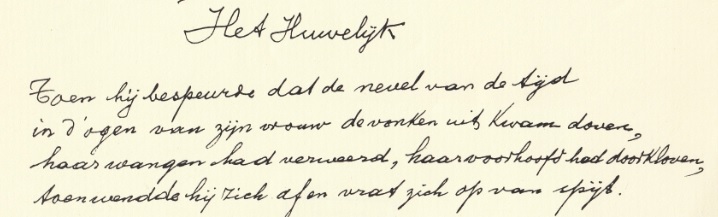 Het Huwelijk
Toen hij bespeurde dat de nevel van de tijd
in d'ogen van zijn vrouw de vonken uit kwam doven,
haar wangen had verweerd, haar voorhoofd had doorkloven,
toen wendde hij zich af en vrat zich op van spijt.